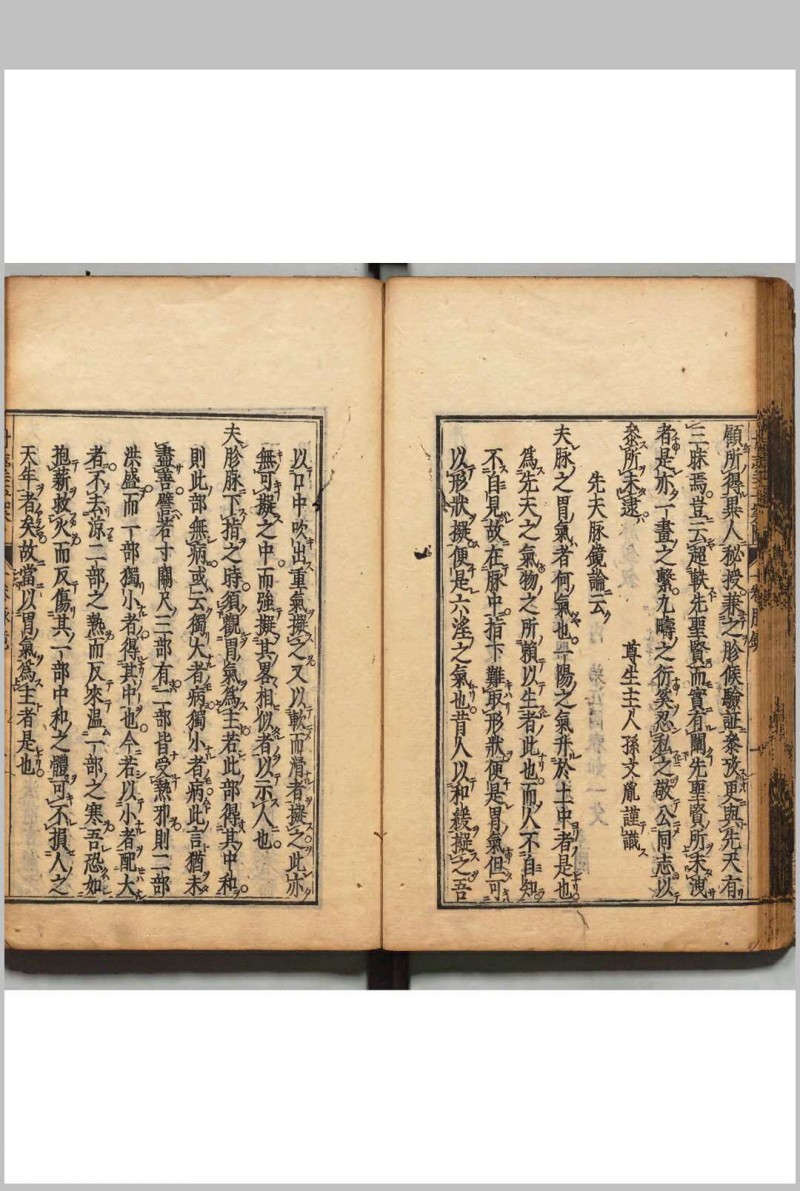 顧所得異人秘授兼之胗候驗証叅攷更與先天有
三昧焉豈云超軼先聖賢而實有闡先聖賢所未洩
者是亦一畫之繫九疇之衍矣忍私之敬公同志以
叅所未逮
尊生主人孫文胤謹識
先天脉鏡論云
夫脉之胃氣者何氣也平陽之氣升於土中者是也
為先天之氣物之所賴以生者此也而人不自知
不自見故在脉中指下難取形狀便是胃氣但可
以形狀擬便是六淫之氣也昔人以和緩擬之吾
以口中吹出重氣擬之又以軟而滑者擬之此亦
無可擬之中而強擬其畧相似者以示人也
夫胗脉下指之時須觀胃氣為主若此部得其中和
則此部無病或云獨大者病獨小者病此言猶未
盡善譬若寸關尺三部有二部皆受熱邪則二部
洪盛而一部獨小者得其中也今若以小者配大
者不去涼二部之熱而反來温一部之寒吾恐如
抱薪救火而反傷其一部中和之體可不損人之
天年者矣故當以胃氣為主者是也